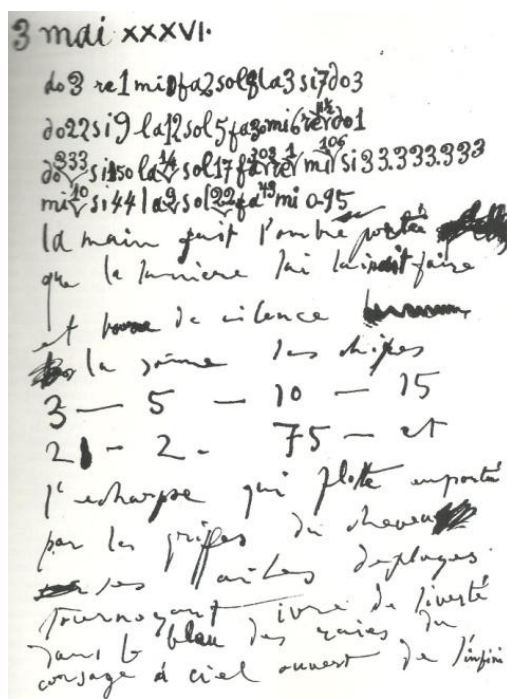 3 mai XXXVI.
do3 re1 mi0 fa2 sol8 la3 si7 do3
do22 si9 la12 sol5 fa30 mi6 re11½ do1
do333 si150 la¼ sol17 fa303 re1 mi106 si33.333.333
mi10 si44 la9 sol22 fa43 mi0-95
la main fait l'ombre portée
que la lumière lui fait faire
et de silence
la somme des chifres
3 — 5 — 10 — 15
21 - 2 - 75 — et
l'echarpe qui flotte emporté
par les griffes du cheveu
ses ailes deployes
tournoyant ivre de liverté
dans le bleu des raies du
corsage à ciel ouvert de l'infini